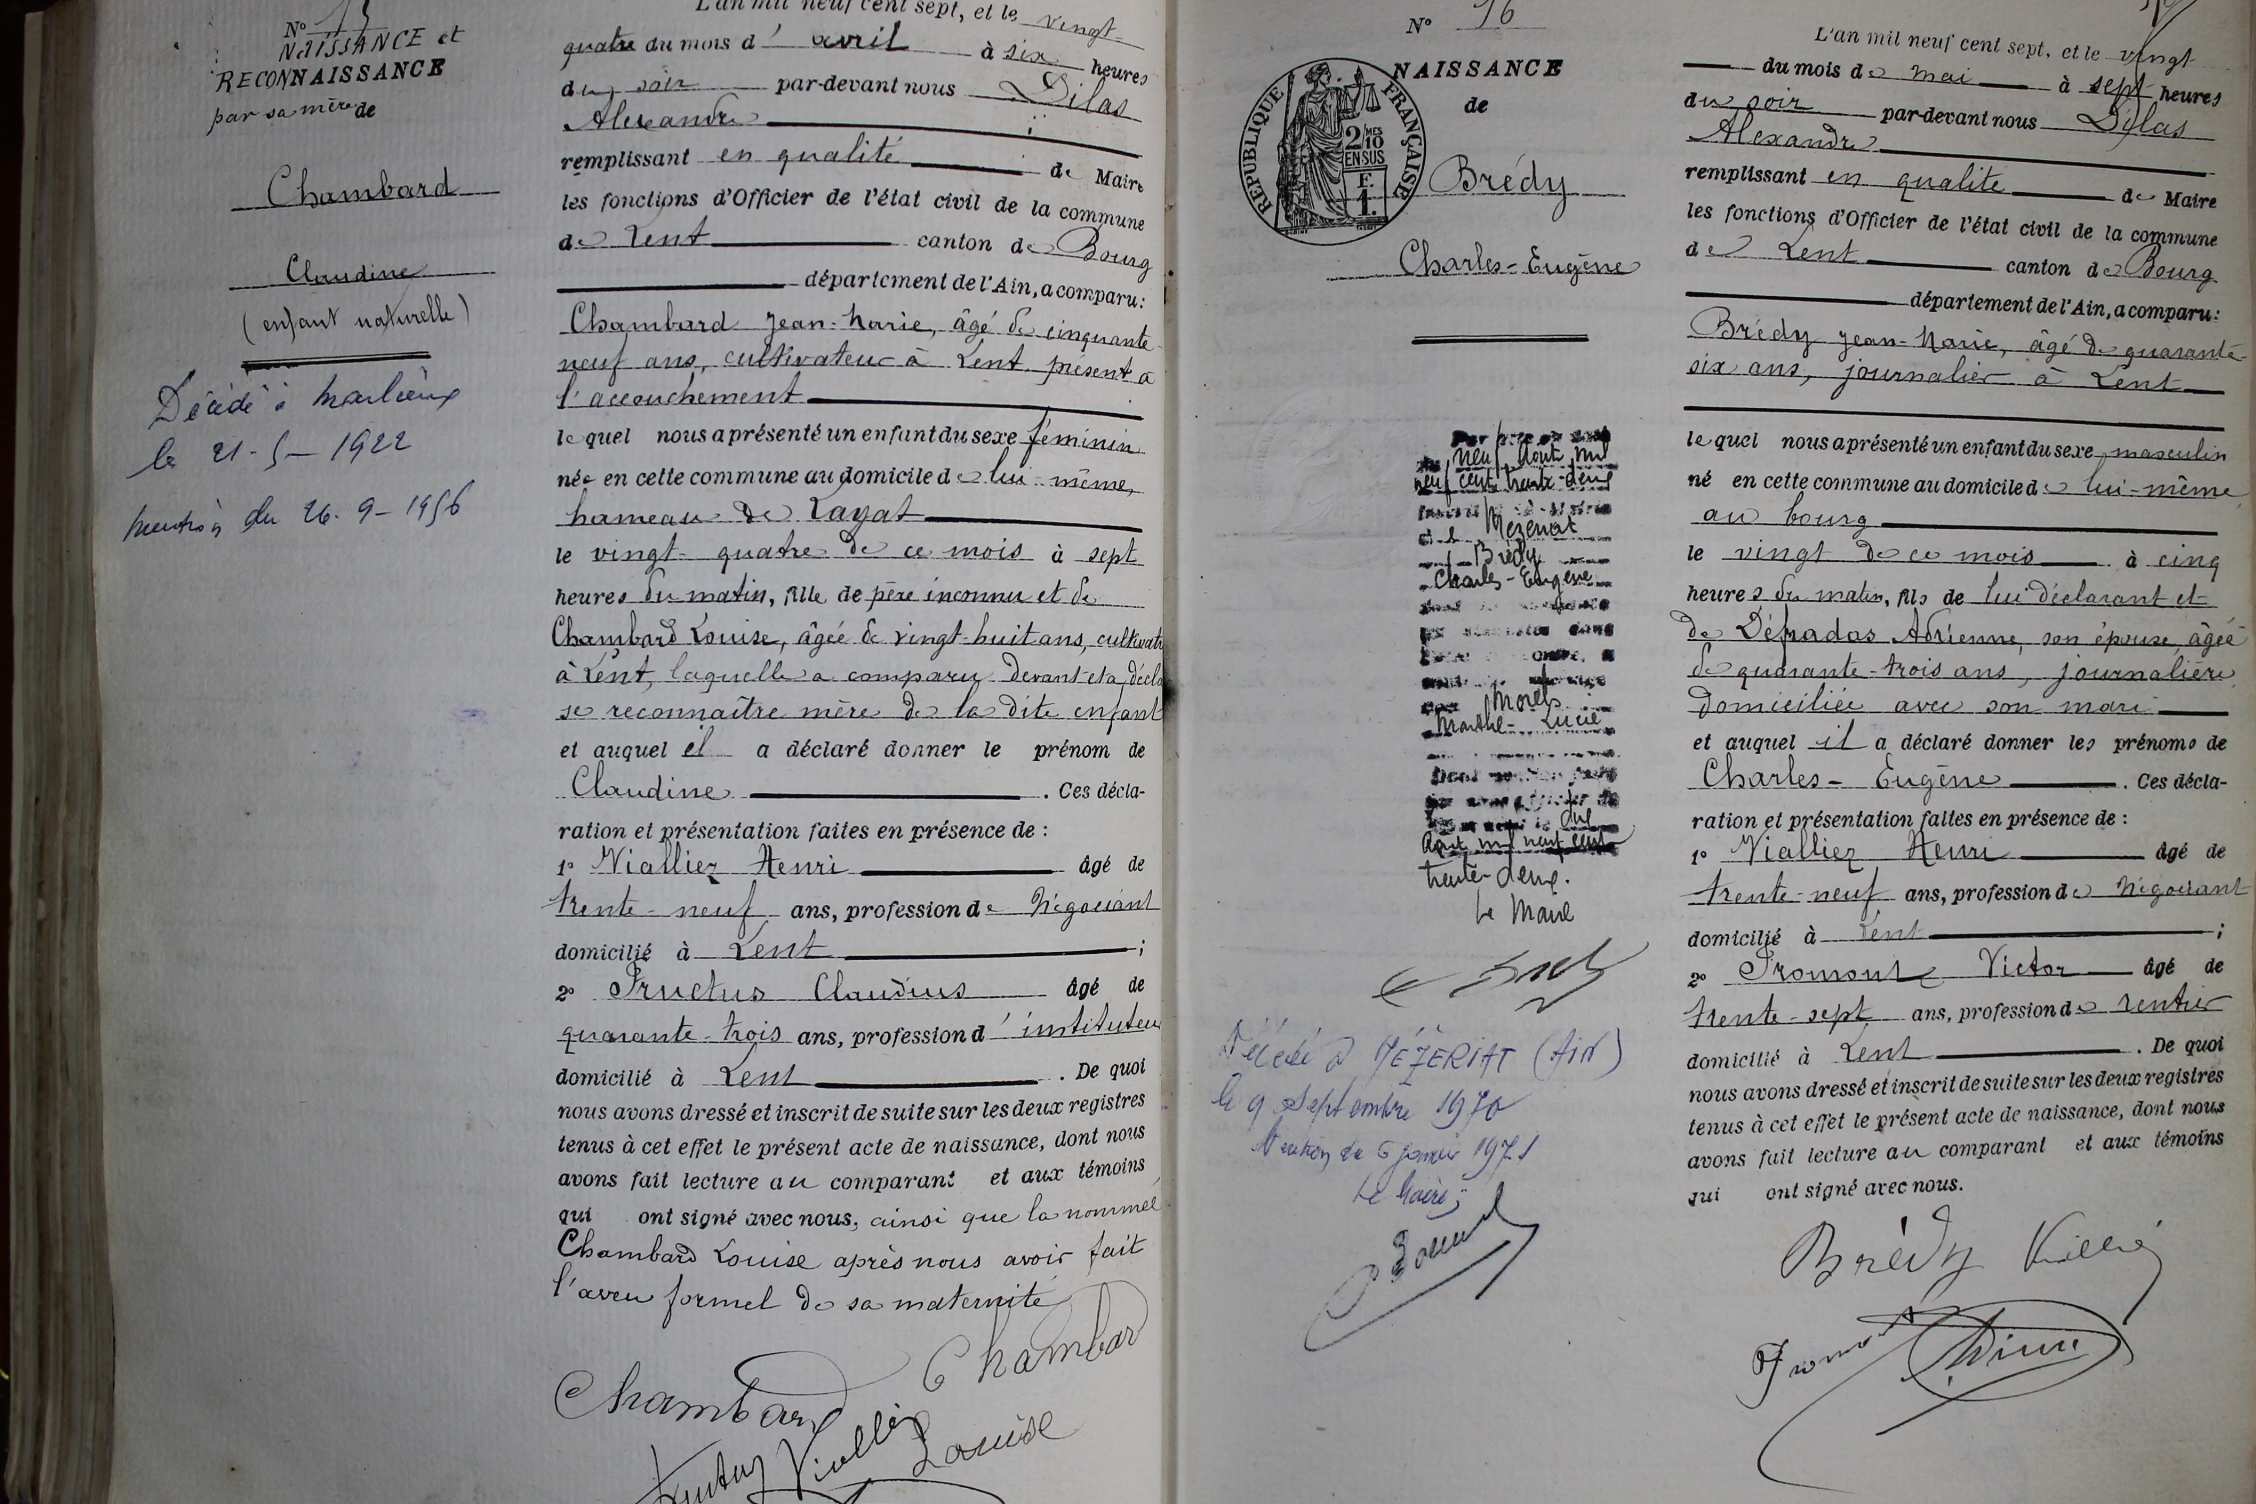 N° 15
NAISSANCE et
RECONNAISSANCE
par sa mère de
Chambard
Claudine
(enfant naturelle)
Décédé à Marlieux
le 21-5-1922
Mention du 26-9-1956
L'an mil neuf cent sept, et le vingt-
quatre du mois d'avril à six heures
du soir par-devant nous Dilas
Alexandre
remplissant en qualité de Maire
les fonctions d'Officier de l'état civil de la commune
de Lent canton de Bourg
département de l'Ain, a comparu:
Chambard Jean-Marie, âgé de cinquante-
neuf ans, cultivateur à Lent présent à
l'accouchement
lequel nous a présenté un enfant du sexe féminin
née en cette commune au domicile de lui-même,
hameau de Layat
le vingt-quatre de ce mois à sept
heures du matin, fille de père inconnu et de
Chambard Louise, âgée de vingt-huit ans, cultivatr
à Lent, laquelle a comparu devant et a décla
se reconnaître mère de la dite enfant
et auquel il a déclaré donner le prénom de
Claudine . Ces décla-
ration et présentation faites en présence de :
1° Viallier Henri âgé de
trente-neuf ans, profession de Négociant
domicilié à Lent ;
2° Fructus Claudius âgé de
quarante-trois ans, profession d'instituteur
domicilié à Lent . De quoi
nous avons dressé et inscrit de suite sur les deux registres
tenus à cet effet le présent acte de naissance, dont nous
avons fait lecture au comparant et aux témoins
qui ont signé avec nous, ainsi que la nommée
Chambard Louise après nous avoir fait
l'aveu formel de sa maternité
Chambard Chambard
Fructus Viallier Louise
N° 16
NAISSANCE
de
RÉPUBLIQUE FRANÇAISE
2/10 MES
EN SUS
F.
1.
Brédy
Charles-Eugène
neuf août mil
neuf cent trente-deux
Mézériat
Brédy
Charles-Eugène
Morel
Marthe-Lucie
août mil neuf cent
trente-deux.
Le Maire
Décédé à MÉZÉRIAT (Ain)
le 9 Septembre 1970
Mention du 6 janvier 1971
Le Maire;
L'an mil neuf cent sept, et le vingt
du mois de mai à sept heures
du soir par-devant nous Dilas
Alexandre
remplissant en qualité de Maire
les fonctions d'Officier de l'état civil de la commune
de Lent canton de Bourg
département de l'Ain, a comparu:
Brédy Jean-Marie, âgé de quarante-
six ans, journalier à Lent
lequel nous a présenté un enfant du sexe masculin
né en cette commune au domicile de lui-même
au bourg
le vingt de ce mois à cinq
heures du matin, fils de lui déclarant et
de Dépradas Adrienne, son épouse, âgée
de quarante-trois ans, journalière,
domiciliée avec son mari
et auquel il a déclaré donner les prénoms de
Charles-Eugène . Ces décla-
ration et présentation faites en présence de :
1° Viallier Henri âgé de
trente-neuf ans, profession de Négociant
domicilié à Lent ;
2° Fromont Victor âgé de
trente-sept ans, profession de rentier
domicilié à Lent . De quoi
nous avons dressé et inscrit de suite sur les deux registres
tenus à cet effet le présent acte de naissance, dont nous
avons fait lecture au comparant et aux témoins
qui ont signé avec nous.
Brédy Viallier
Fromont